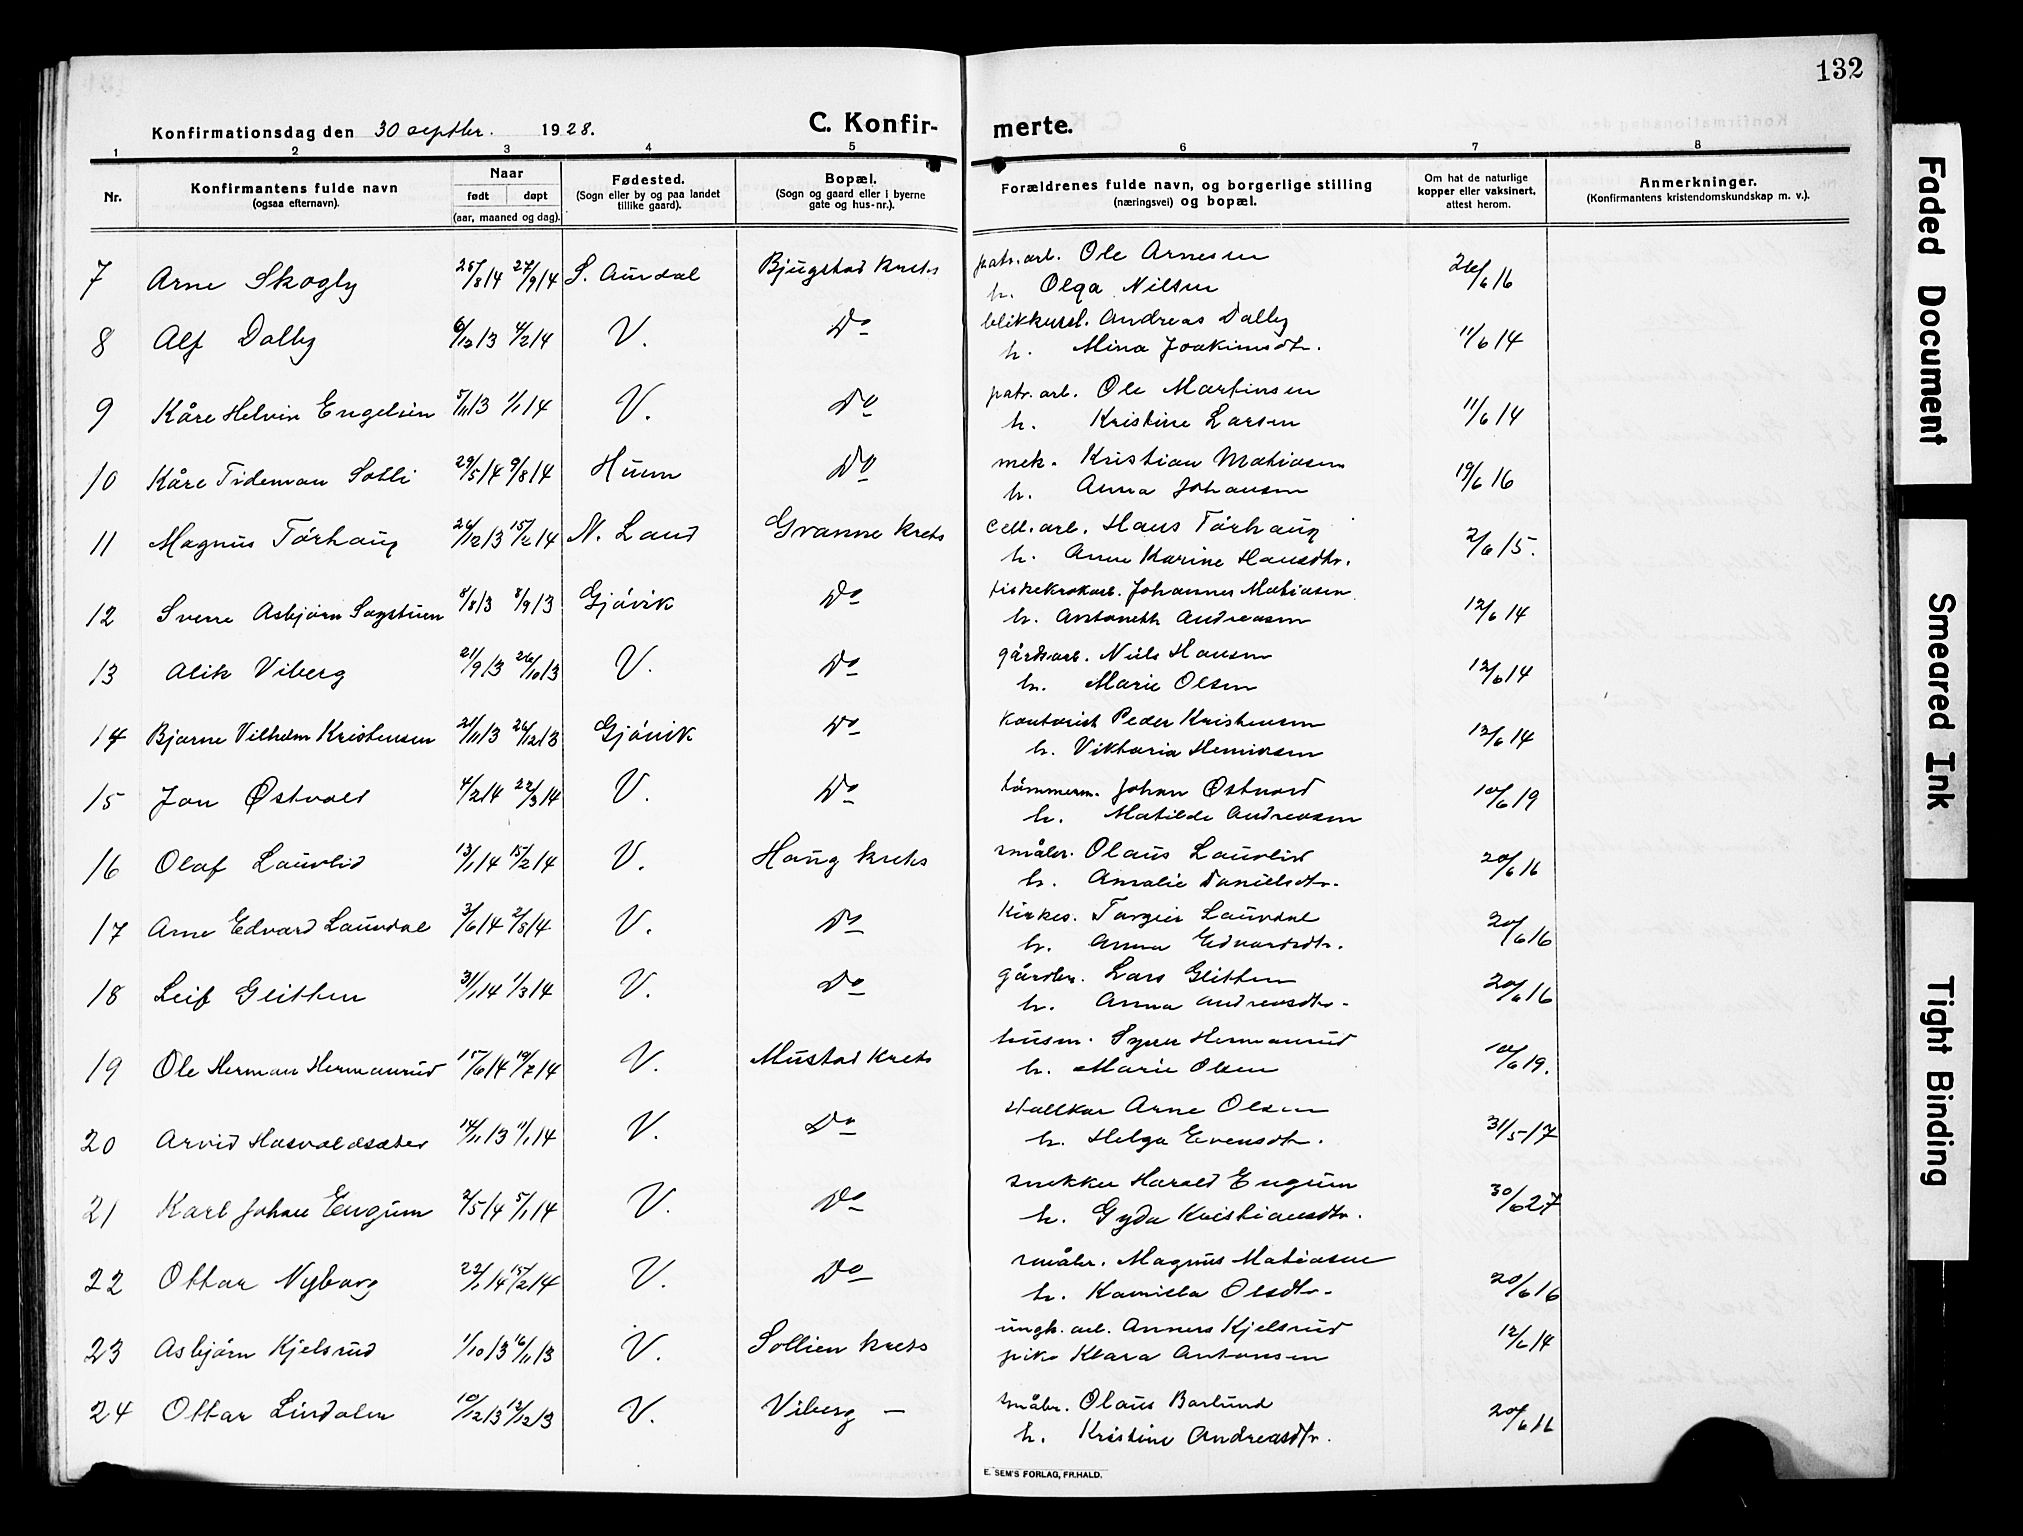 132
Konfirmationsdag den 30 septbr. 1928.
C. Konfir-
merte.
1 2 3 4 5 6 7 8
Nr.
Konfirmantens fulde navn
(ogsaa efternavn).
Naar
født døpt
(aar, maaned og dag).
Fødested.
(Sogn eller by og paa landet
tillike gaard).
Bopæl.
(Sogn og gaard eller i byerne
gate og hus-nr.).
Forældrenes fulde navn, og borgerlige stilling
(næringsvei) og bopæl.
Om hat de naturlige
kopper eller vaksinert,
attest herom.
Anmerkninger.
(Konfirmantens kristendomskundskap m. v.).
7 Arne Skogly 25/8 14 27/9 14 S. Aurdal Bjugstad krets patr.arb. Ole Arnesen 26/6 16
h. Olga Nilsen
8 Alf Dalby 6/12 13 4/2 14 V. Do blikkensl. Andreas Dalby 11/6 14
h. Mina Joakimsdtr.
9 Kåre Helvin Engelien 5/11 13 1/1 14 V. Do patr. arb. Ole Martinsen 11/6 14
h. Kristine Larsen
10 Kåre Tideman Solli 29/5 14 9/8 14 Hunn Do mek. Kristian Matiasen 19/6 16
h. Anna Johansen
11 Magnus Törhaug 26/12 13 15/2 14 N. Land Granne krets cell. arb. Hans Törhaug 2/6 15.
h. Anne Karine Hansdtr.
12 Sverre Asbjørn Sagstuen 8/8 13 8/9 13 Gjövik Do fiskekrokarb. Johannes Matiasen 12/6 14
h. Antoneth Andreasen
13 Alik Viberg 21/9 13 26/10 13 V. Do gårdsarb. Nils Hansen 12/6 14
h. Marie Olsen
14 Bjarne Vilhelm Kristensen 21/11 13 26/12 13 Gjövik Do kontorist Peder Kristensen 12/6 14
h. Viktoria Henriksen
15 Jon Østvold 4/2 14 22/3 14 V. Do tömmerm. Johan Østvold 10/6 19
h. Matilde Andreasen
16 Olaf Lauvlid 13/1 14 15/2 14 V. Haug krets småbr. Olaus Lauvlid 20/6 16
h. Amalie Danielsdtr.
17 Arne Edvard Lauvdal 3/6 14 2/8 14 V. Do kirkes. Torgeir Lauvdal 20/6 16
h. Anna Edvardsdtr.
18 Leif Glitten 31/1 14 1/3 14 V. Do gårdbr. Lars Glitten 20/6 16
h. Anna Andreasdtr.
19 Ole Herman Hermanrud 15/6 14 19/7 14 V. Mustad krets husm. Syver Hermanrud 10/6 19.
h. Marie Olsen
20 Arvid Hasvoldsæter 14/11 13 11/1 14 V. Do Arne Olsen 31/5-17
h. Helga Evensdtr.
21 Karl Johan Engum 2/5 14 5/1 14 V. Do snekker Harald Engum 30/6 27
h. Gyda Kristiansdtr.
22 Ottar Nyborg 22/1 14 15/2 14 V. Do småbr. Magnus Matiasen 20/6 16
h. Kamilla Olsdtr.
23 Asbjörn Kjelsrud 1/10 13 16/11 13 V. Sollien krets ungk. arb. Anners Kjelsrud 12/6 14
pike Klara Antonsen
24 Ottar Lindalen 10/12 13 13/12 13 V. Viberg — småbr. Olaus Barlund 20/6 16
h. Kristine Andreasdtr.
E. SEM'S FORLAG, FR.HALD.
Faded Document
Smeared Ink
Tight Binding